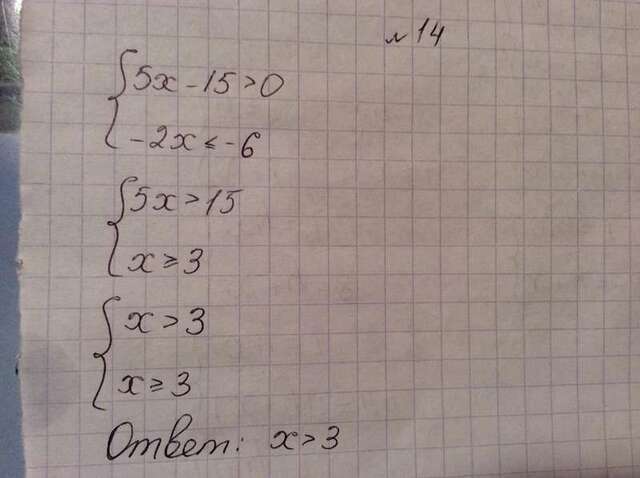 №14
5x - 15 > 0
-2x ≤ -6
5x > 15
x ≥ 3
x > 3
x ≥ 3
Ответ: x > 3